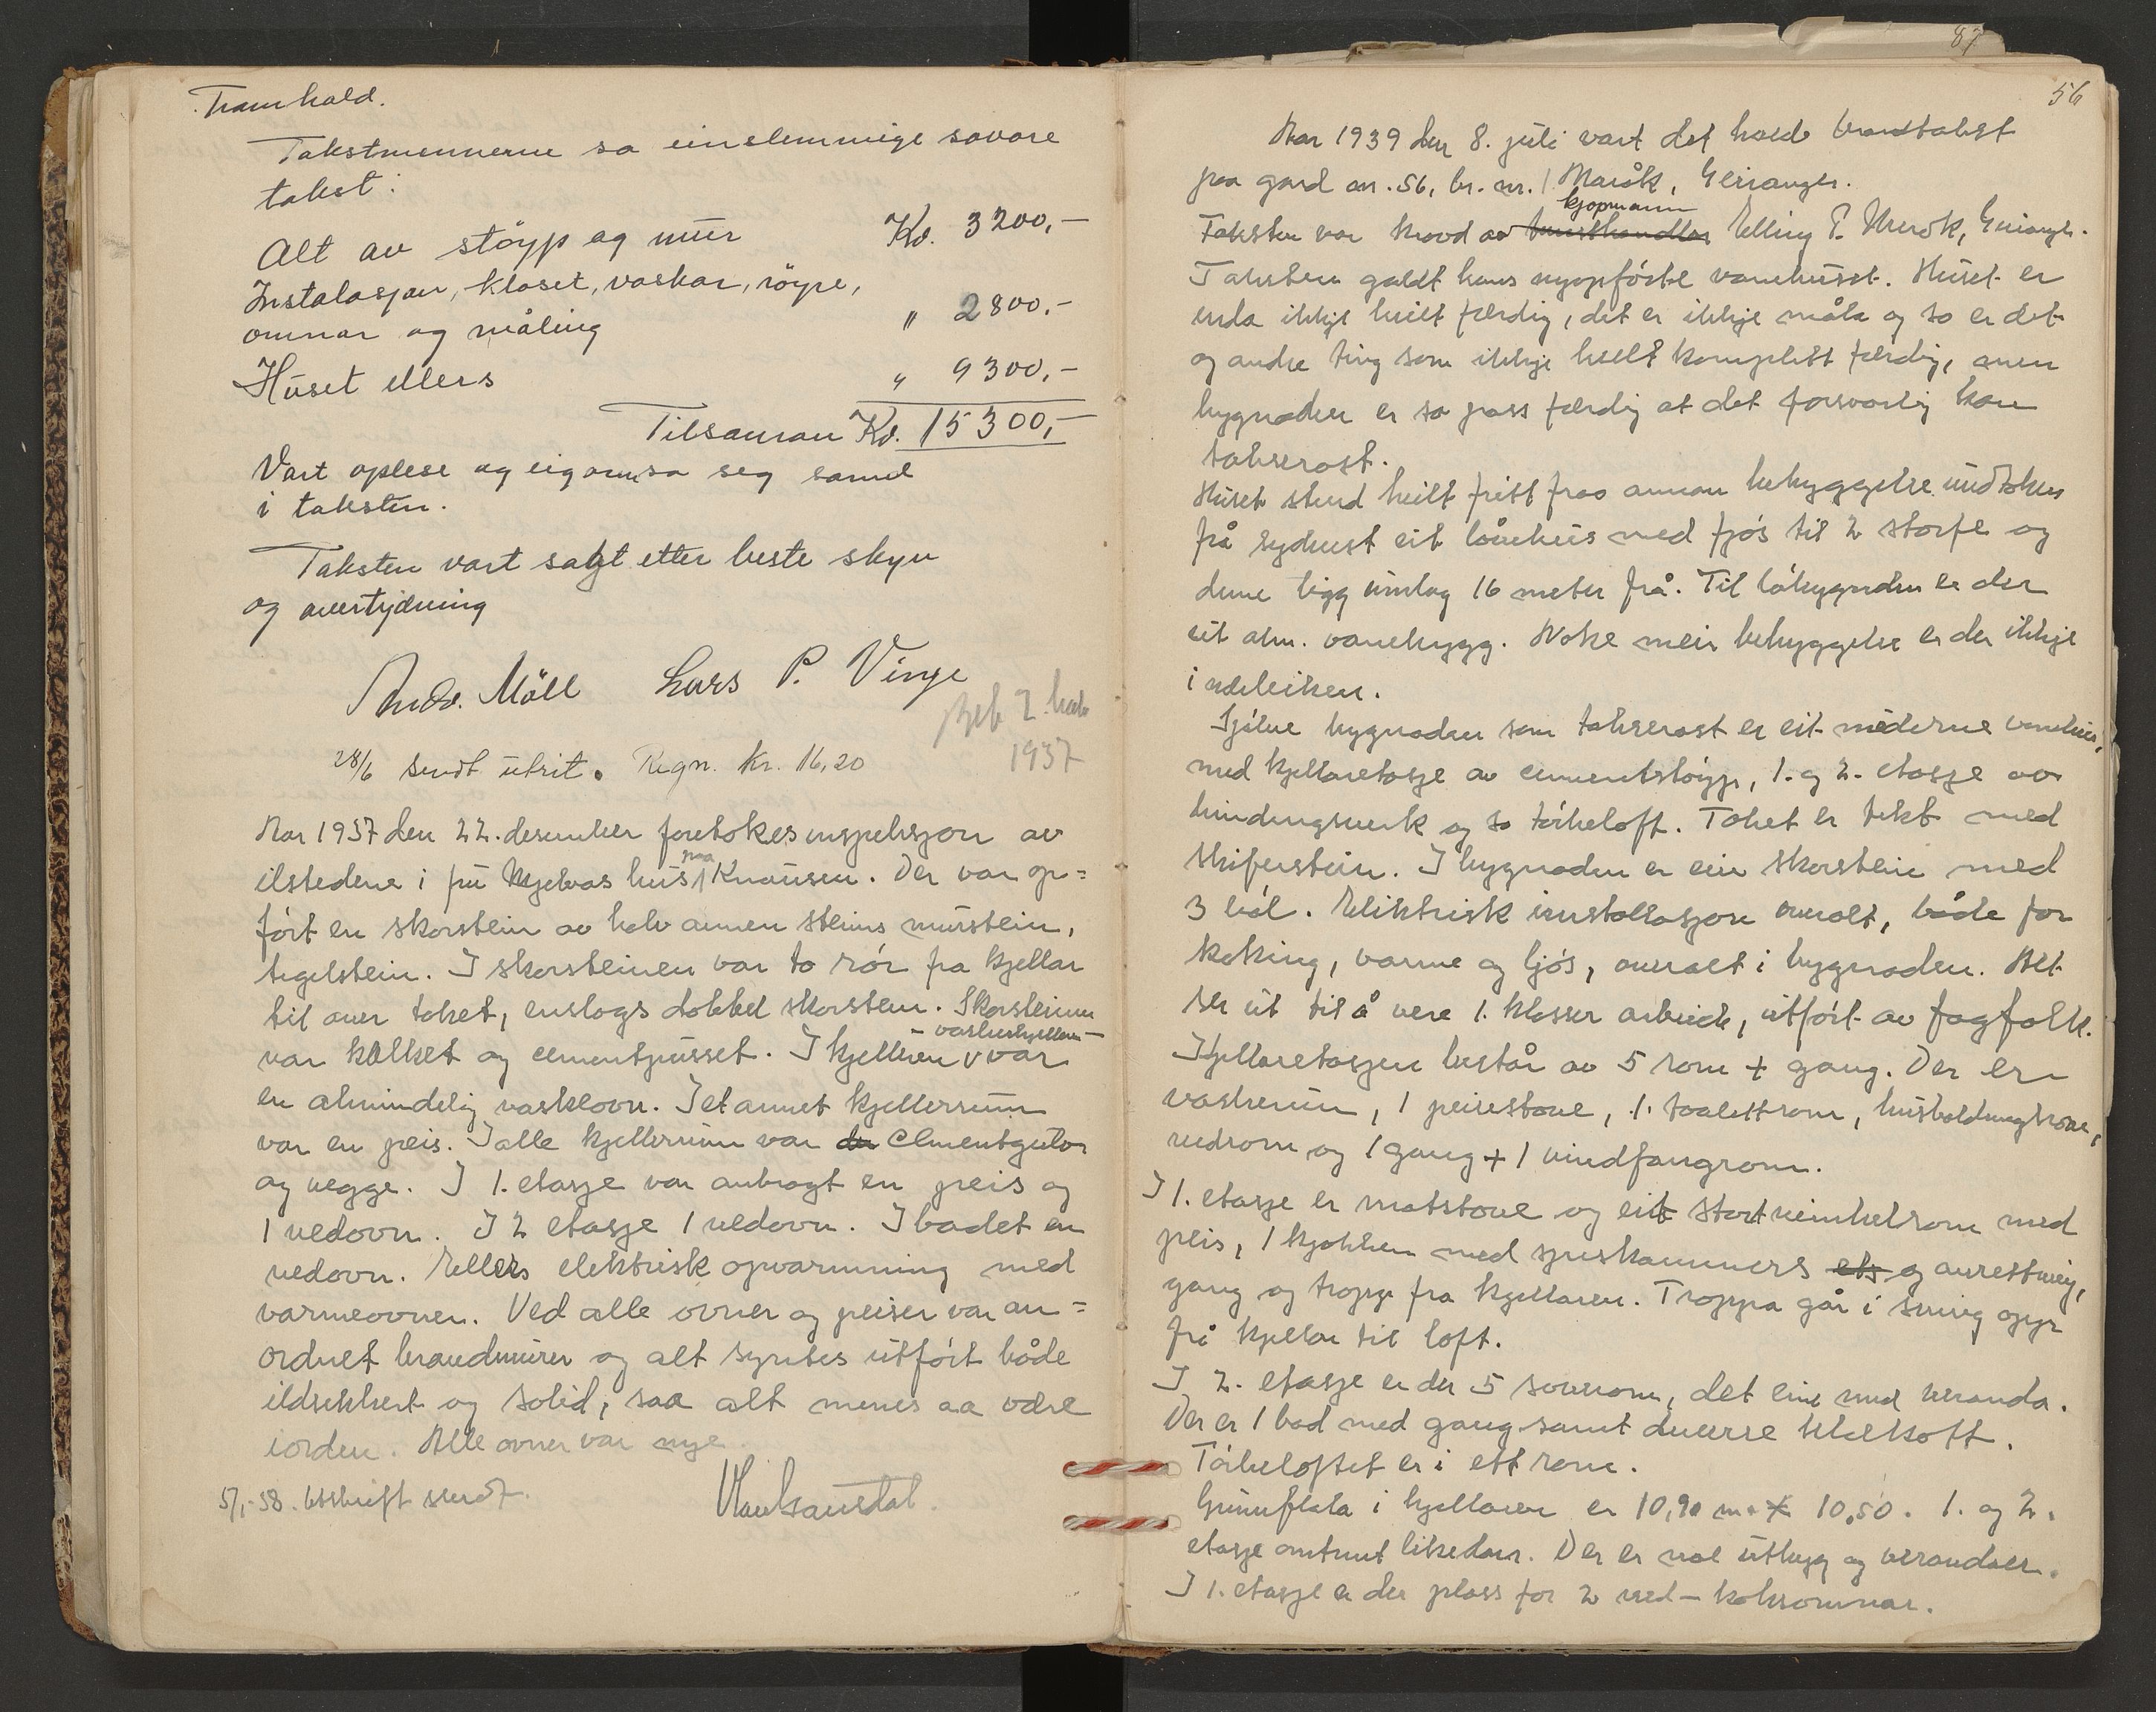 Framhald.
Takstmennerne sa einstemmige sovore
takst:
Alt av støyp og mur Kr. 3200,-
Instalasjon, kloset, vaskar, røyre,
omnar og måling " 2800.-
Huset ellers " 9300,-
Tilsaman Kr. 15300,-
Vart oplese og eigaren sa seg samd
i taksten.
Taksten vart sagt etter beste skyn
og overtydning
Andr. Möll Lars P. Vinje
28/6 sendt utskrift. Regn. Kr. 16,20
1937
Aar 1937 den 22. desember foretokes inspeksjon av
ilstedene i fru Mjelvas hus paa Knausen. Der var op=
ført en skorstein av halv annen steins murstein,
tegelstein. I skorsteinen var to rør fra kjellar
til over taket, enslags dobbel skorstein. Skorsteinen
var kalket og cementpusset. I kjelleren - vaskerkjelleren - var
en almindelig vaskeovn. I et annet kjellerrum
var en peis. I alle kjellerrum var der cementgulv
og vegge. I 1. etasje var anbragt en peis og
1 vedovn. I 2 etasje 1 vedovn. I badet en
vedovn. Ellers elektrisk opvarmning med
varmeovner. Ved alle ovner og peiser var an=
ordnet brandmurer og alt syntes utført både
ildsikkert og solid, saa alt menes aa være
iorden. Alle ovner var nye.
5/1-38. Utskrift sendt.
87
56
Aar 1939 den 8. juli vart det halde brandtakst
paa gard nr. 56, br. nr. 1 Maråk, Geiranger.
kjøpmann
Taksten var kravd av kunsthandlar Elling P. Merok, Geiranger.
Taksten galdt hans nyopførte vånehuset. Huset er
enda ikkje heilt færdig, det er ikkje måla og so er det
og andre ting som ikkje heilt komplett færdig, men
bygnaden er so pass færdig at det forsvarlig kan
takserast.
Huset stend heilt fritt fraa annan bebyggelse undtaken
frå sydvest eit lånehus med fjøs til 2 storfe og
denne ligg umlag 16 meter frå. Til løbygnaden er der
eit alm. vånebygg. Noke meir bebyggelse er der ikkje
i nærleiken.
Sjølve bygnaden som takserast er eit moderne vånehus,
med kjellaretasje av cementstøyp, 1. og 2. etasje av
bindingsverk og so tørkeloft. Taket er tekt med
skiferstein. I bygnaden er ein skorstein med
3 løl. Elektrisk installasjon overalt, både for
koking, varme og ljós, overalt i bygnaden. Alt
ser ut til å vere 1. klasses arbeide, utført av fagfolk.
Kjellaretasjen består av 5 rom + gang. Der er
vaskerum, 1 peisestove, 1. toalettrom, husholdningsrom,
vedrom og 1 gang + 1 vindfangrom.
I 1. etasje er matstove og eit stort vinkelrom med
peis, 1 kjøkken med spiskammers ets og anrettning,
gang og tropp fra kjellaren. Troppa går i sving opp
frå kjellar til loft.
I 2. etasje er der 5 soverom, det eine med veranda.
Der er 1 bad med gang samt diverse klækott.
Tørkeloftet er i ett rom.
Grunnflata i kjellaren er 10,90 m. x 10,50. 1. og 2.
etasje omtrent likedan. Der er noe utbygg og verandaer.
I 1. etasje er der plass for 2 ved- koksomnar.